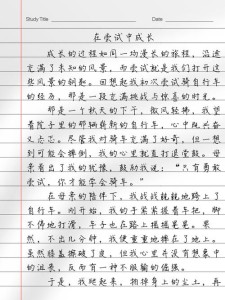 Study Title:
Date:
在尝试中成长
成长的过程如同一场漫长的旅程，沿途
充满了未知的风景，而尝试就是我们打开这
些风景的钥匙。回想起我初次尝试骑自行车
的经历，那是一段充满挑战与惊喜的时光。
那是一个秋天的下午，微风轻拂，我望
着院子里的那辆崭新的自行车，心中既兴奋
又忐忑。尽管我对骑车充满了好奇，但一想
到可能会摔倒，我的心里就直打退堂鼓。母
亲看出了我的犹豫，鼓励我说：“只有勇敢
尝试，你才能学会骑车。”
在母亲的陪伴下，我战战兢兢地跨上了
自行车。刚开始，我的手紧紧握着车把，脚
不停地打滑，车子也在路上摇摇晃晃。果
然，不出几分钟，我便重重地摔在了地上。
虽然膝盖擦破了皮，但我心里并没有想象中
的沮丧，反而有一种不服输的倔强。
于是，我爬起来，拍掉身上的尘土，再